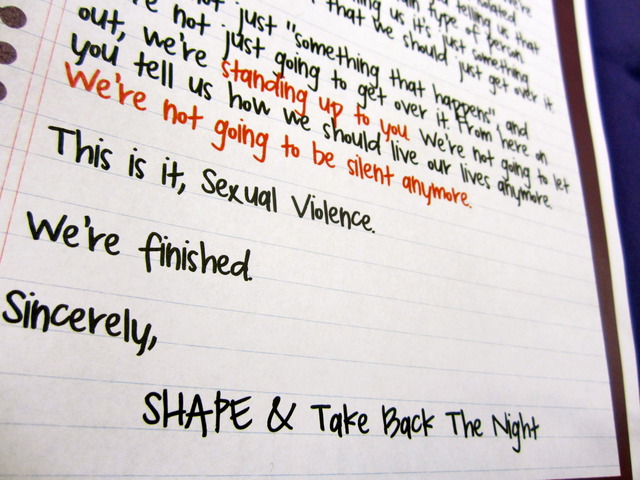 isolated
telling us that
type of person
us it's just something
that we should just get over it.
not just "something that happens" and
not just going to get over it. From here on
out, we're standing up to you. We're not going to let
you tell us how we should live our lives anymore.
We're not going to be silent anymore.
This is it, Sexual Violence.
We're finished.
Sincerely,
SHAPE & Take Back The Night